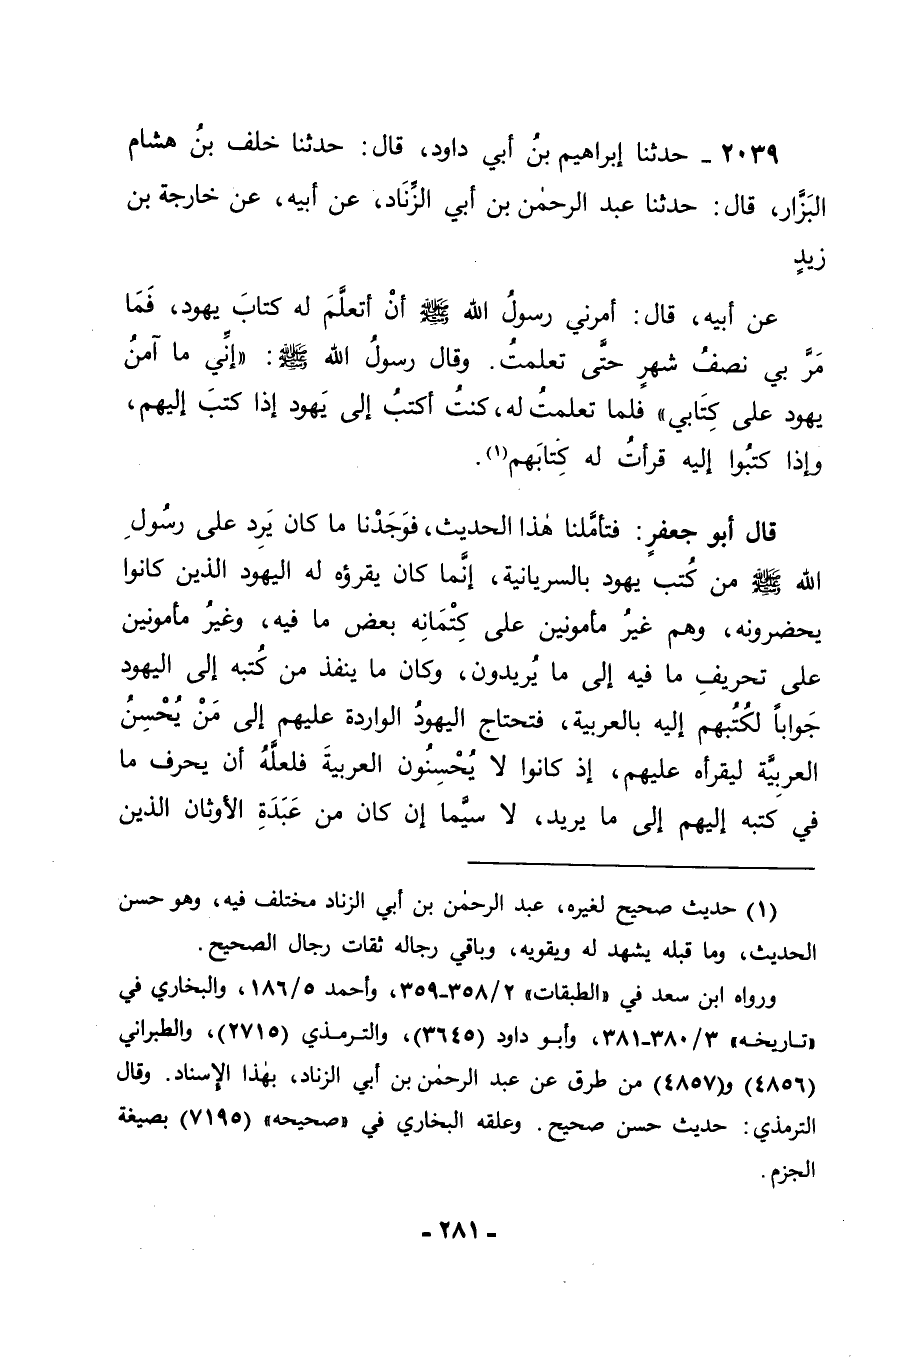 ٢٠٣٩ ـ حدثنا إبراهيم بنُ أبي داود، قال: حدثنا خلف بنُ هشام
البَزَّار، قال: حدثنا عبد الرحمٰن بن أبي الزِّنَاد، عن أبيه، عن خارجة بن
زيدٍ
عن أبيه، قال: أمرني رسولُ الله ﷺ أنْ أتعلَّمَ له كتابَ يهود، فَمَا
مَرَّ بي نصفُ شهرٍ حتَّى تعلمتُ. وقال رسولُ الله ﷺ: «إنِّي ما آمنُ
يهود على كِتَابي» فلما تعلمتُ له، كنتُ أكتبُ إلى يَهود إذا كتبَ إليهم،
وإذا كتبُوا إليه قرأتُ له كِتابَهم(١).
قال أبو جعفرٍ: فتأمَّلنا هٰذا الحديث، فوَجَدْنا ما كان يَرِد على رسُولِ
الله ﷺ من كُتب يهود بالسريانية، إنَّما كان يقرؤه له اليهود الذين كانوا
يحضرونه، وهم غيرُ مأمونين على كِتْمَانِه بعض ما فيه، وغيرُ مأمونين
على تحريفِ ما فيه إلى ما يُريدون، وكان ما ينفذ من كُتبه إلى اليهود
جَواباً لكُتُبهم إليه بالعربية، فتحتاج اليهودُ الواردة عليهم إلى مَنْ يُحْسِنُ
العربيَّة ليقرأه عليهم، إذ كانوا لا يُحْسِنُون العربيةَ فلعلَّهُ أن يحرف ما
في كتبه إليهم إلى ما يريد، لا سيَّما إن كان من عَبَدَةِ الأوثان الذين
(١) حديث صحيح لغيره، عبد الرحمٰن بن أبي الزناد مختلف فيه، وهو حسن
الحديث، وما قبله يشهد له ويقويه، وباقي رجاله ثقات رجال الصحيح.
ورواه ابن سعد في «الطبقات» ٣٥٨/٢ـ٣٥٩، وأحمد ١٨٦/٥، والبخاري في
«تاريخه» ٣٨٠/٣ـ٣٨١، وأبو داود (٣٦٤٥)، والترمذي (٢٧١٥)، والطبراني
(٤٨٥٦) و(٤٨٥٧) من طرق عن عبد الرحمٰن بن أبي الزناد، بهٰذا الإسناد. وقال
الترمذي: حديث حسن صحيح. وعلقه البخاري في «صحيحه» (٧١٩٥) بصيغة
الجزم.
ـ ٢٨١ ـ